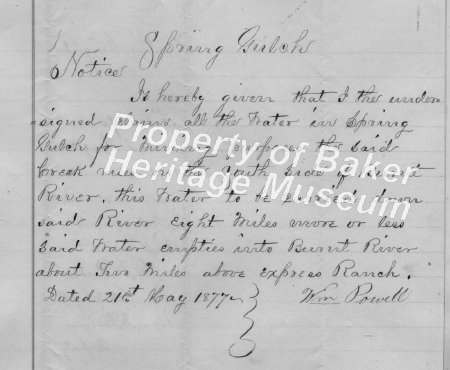 Spring Gulch
Notice
Is hereby given that I the under
signed claims all the Water in Spring
Gulch for Mining Purposes the said
Creek on the South Side of Burnt
River. this Water to be from
said River Eight Miles more or less
said Water empties into Burnt River
about Two Miles above Express Ranch.
Dated 21st May 1877 Wm Powell
Property of Baker
Heritage Museum